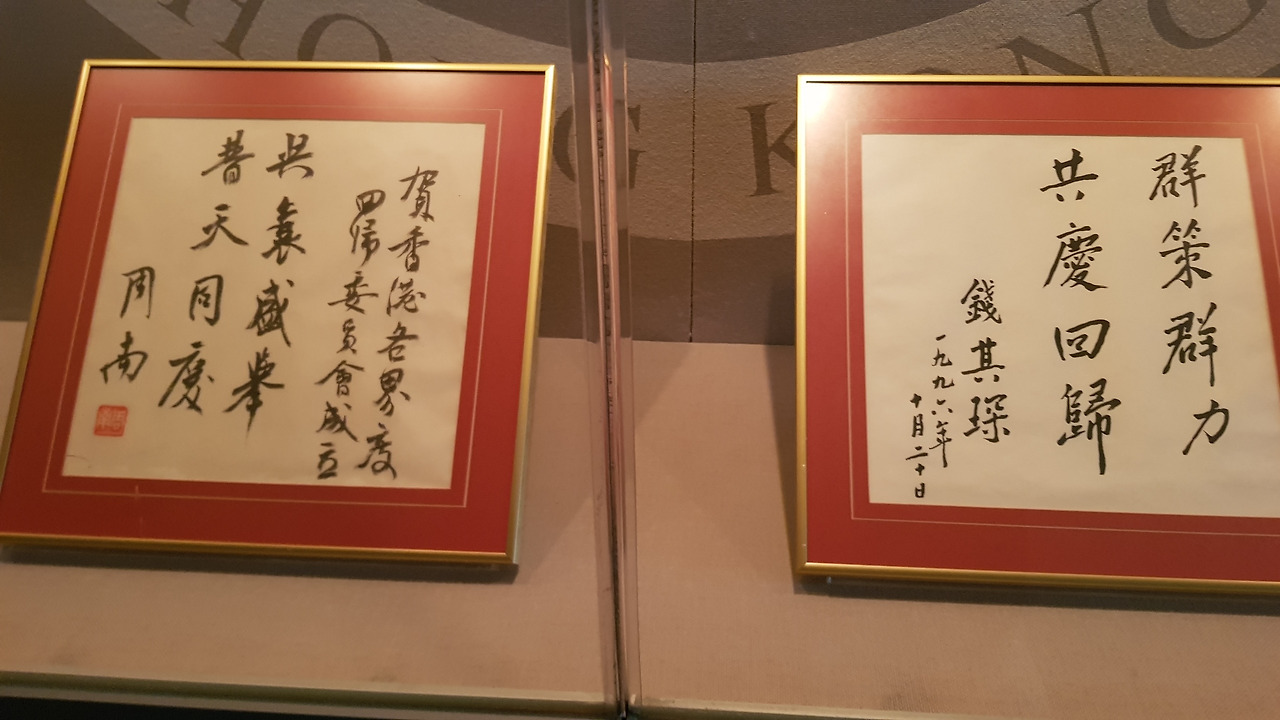 HONG KONG
賀香港各界慶
回歸委員會成立
共襄盛舉
普天同慶
周南
群策群力
共慶回歸
錢其琛
一九九六年
十月二十日